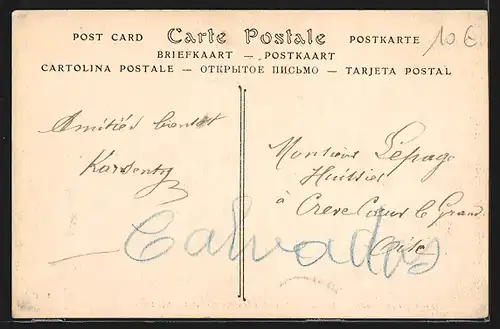 POST CARD Carte Postale POSTKARTE
BRIEFKAART — POSTKAART
CARTOLINA POSTALE — ОТКРЫТОЕ ПИСЬМО — TARJETA POSTAL
10 €
Amitiés
Monsieur Lepage
Huissier
à Creve Coeur le Grand
Oise
Calvados